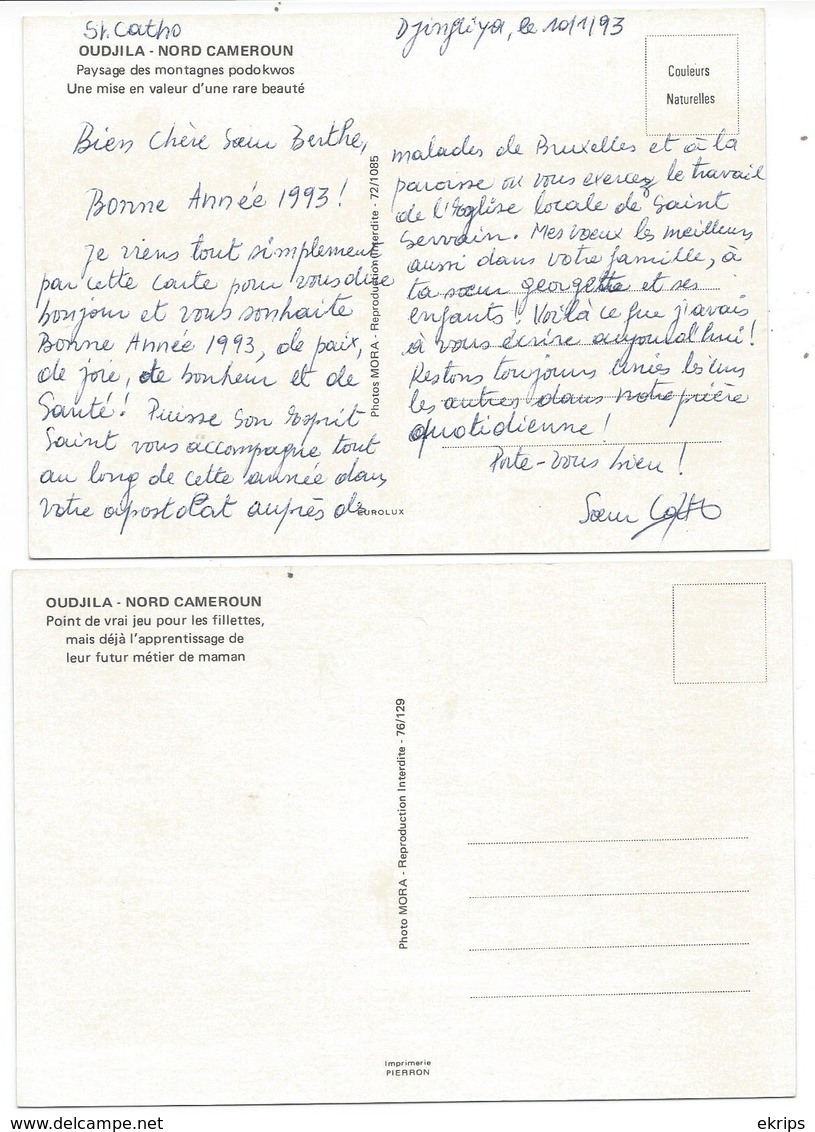 Sr. Catho
OUDJILA - NORD CAMEROUN
Paysage des montagnes podokwos
Une mise en valeur d'une rare beauté
Djingliya, le 10/1/93
Couleurs
Naturelles
Bien Chère Sœur Berthe,
Bonne Année 1993 !
Je viens tout simplement
par cette carte pour vous dire
bonjour et vous souhaite
Bonne Année 1993, de paix,
de joie, de bonheur et de
Santé ! Puisse Son Esprit
Saint vous accompagne tout
au long de cette année dans
votre apostolat auprès de
Photos MORA - Reproduction Interdite - 72/1085
EUROLUX
malades de Bruxelles et à la
paroisse où vous exercez le travail
de l'Eglise locale de Saint
Servain. Mes vœux les meilleurs
aussi dans votre famille, à
ta sœur georgette et ses
enfants ! Voilà ce que j'avais
à vous écrire aujourd'hui !
Restons toujours unies les uns
les autres dans notre prière
quotidienne !
Porte-vous bien !
Sœur Catho
OUDJILA - NORD CAMEROUN
Point de vrai jeu pour les fillettes,
mais déjà l'apprentissage de
leur futur métier de maman
Photo MORA - Reproduction Interdite - 76/129
Imprimerie
PIERRON
ekrips